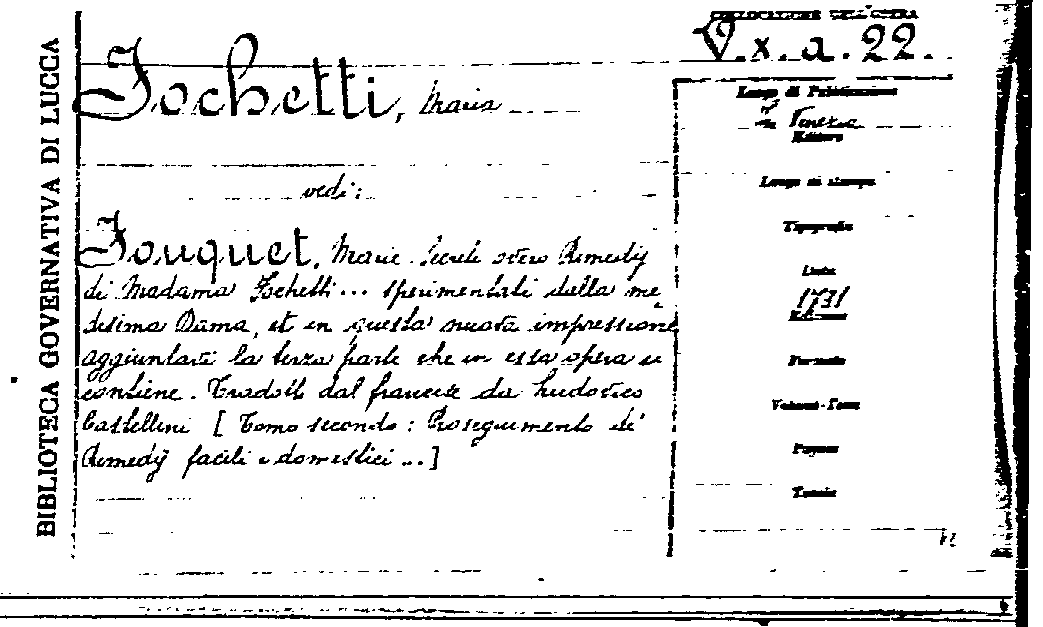 BIBLIOTECA GOVERNATIVA DI LUCCA
COLLOCAZIONE DELL'OPERA
V. x. a. 22.
Fochetti, Maria
vedi:
Fouquet, Marie. Secreti overo Remedij
di Madama Fochetti ... sperimentati dalla me
desima Dama, et in questa nuova impressione
aggiuntavi la terza parte che in essa opera si
contiene. Tradotti dal francese da Ludovico
Castellini [Tomo secondo: Proseguimento de'
Remedij facili e domestici ...]
Luogo di Pubblicazione
Venezia
Editore
Luogo di stampa
Tipografia
Data
1731
Formato
Volumi-Tomi
Pagine
Tavole